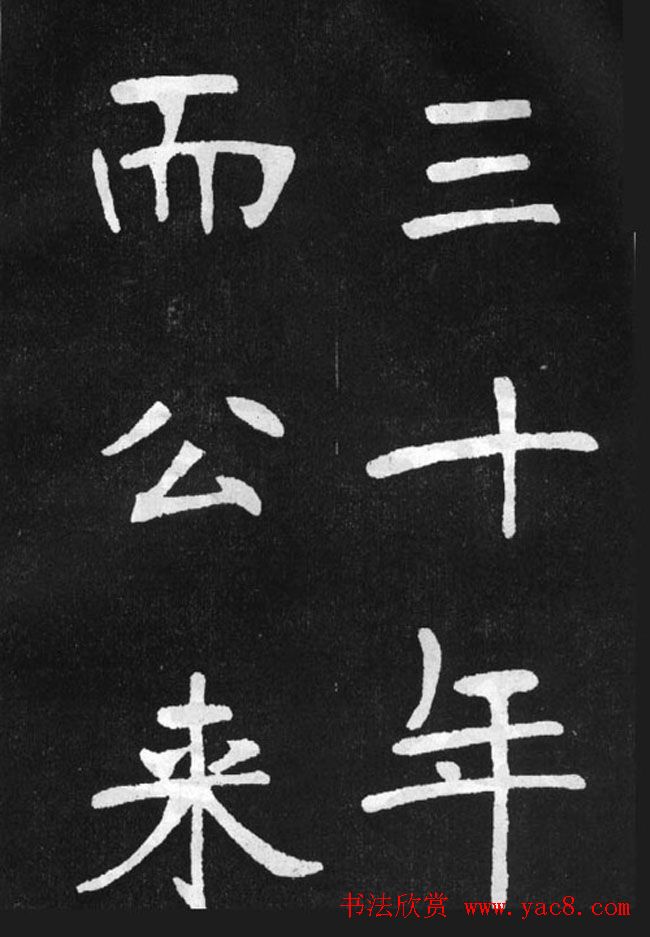 三十年
而公来
书法欣赏 www.yac8.com